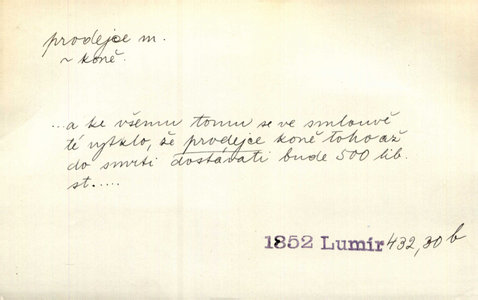 prodejce m.
~ koně.
...a ke všemu tomu se ve smlouvě
té vytklo, že prodejce koně toho až
do smrti dostávati bude 500 lib.
st.....
1852 Lumír 432,30 b